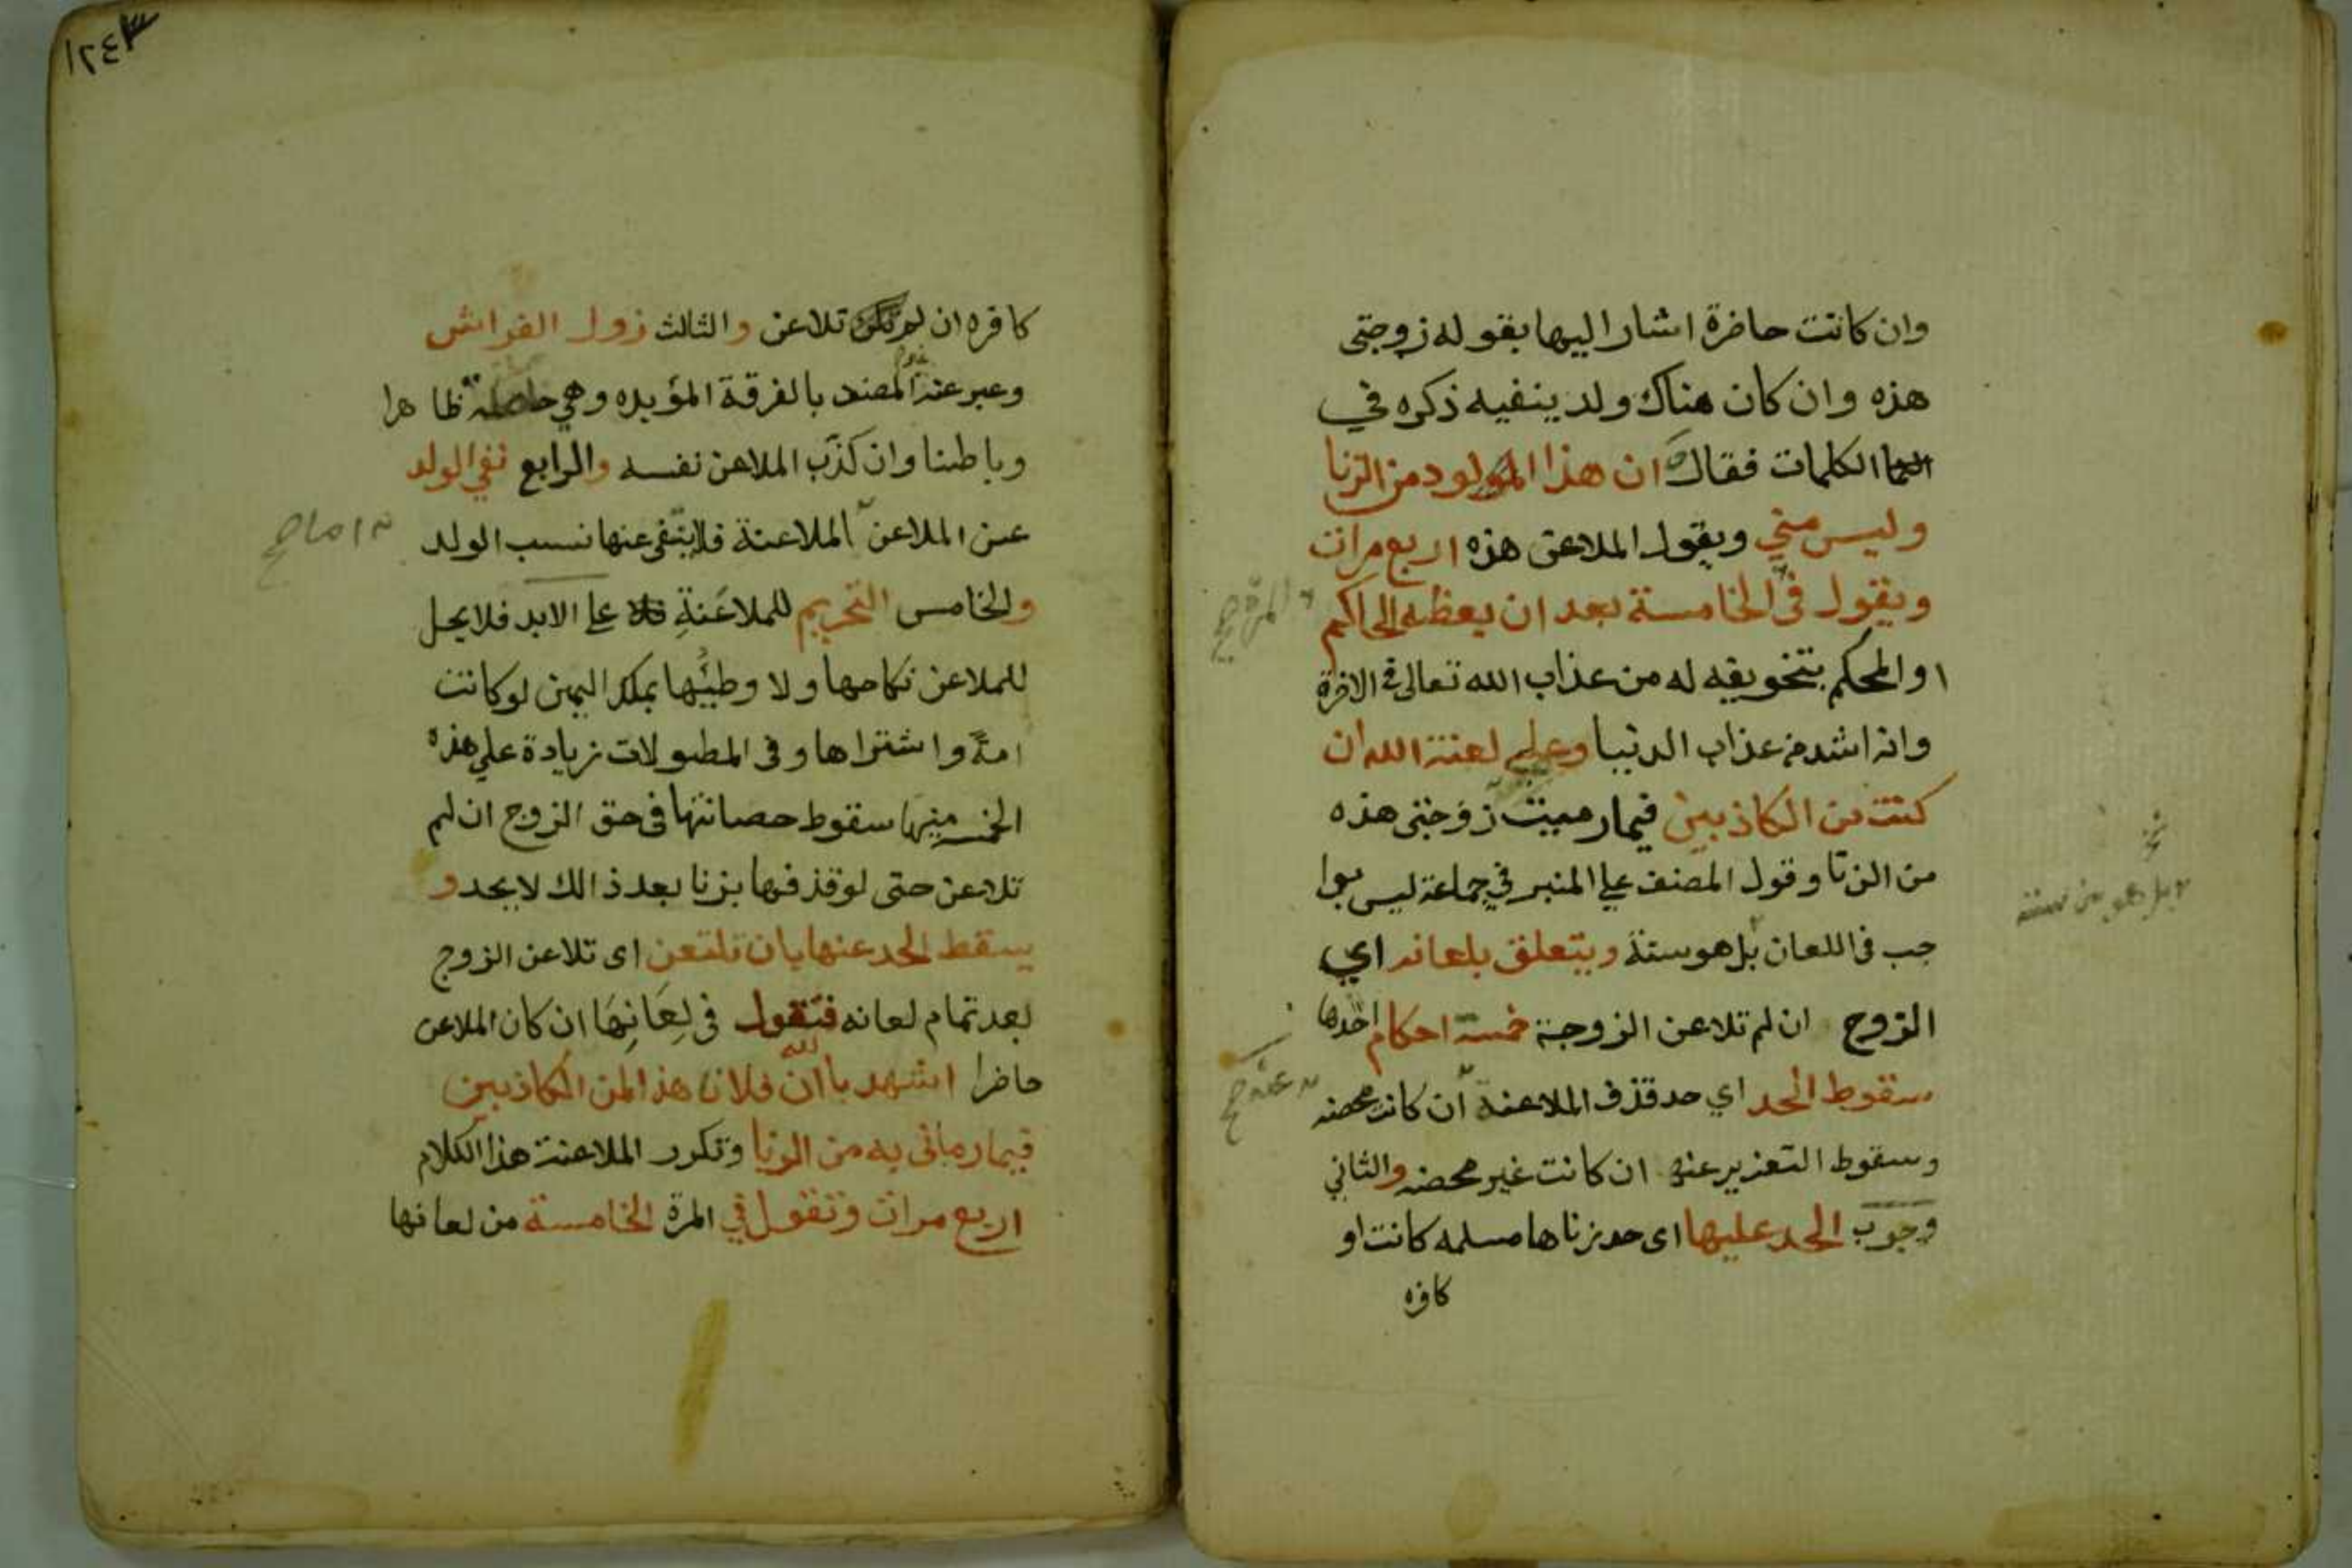 وان كانت حاضرة اشار اليها بقوله زوجتي
هذه وان كان هناك ولد ينفيه ذكره في
الكلمات فقال ان هذا المولود من الزنا
وليس مني ويقول الملاعن هذه اربع مرات
ويقول في الخامسة بعد ان يعظه الحاكم
او المحكم بتخويفه له من عذاب الله تعالى في الاخرة
وانه اشد من عذاب الدنيا وعلي لعنة الله ان
كنت من الكاذبين فيما رميت زوجتي هذه
من الزنا وقول المصنف على المنبر في جماعة ليس بوا
جب في اللعان بل هو سنة ويتعلق بلعانه اي
الزوج ان لم تلاعن الزوجة خمسة احكام احدها
سقوط الحد اي حد قذف الملاعنة ان كانت محصنه
وسقوط التعزير عنه ان كانت غير محصنه والثاني
وجوب الحد عليها اى حد زناها مسلمه كانت او
كافره
المرة صح
عنه صح
بل هو سنة
١٢٤
كافره ان لم تلاعن والثالث زوال الفراش
وعبر عنه المصنف بالفرقة المؤبده وهي حاصلة ظاهرا
وباطنا وان كذب الملاعن نفسه والرابع نفي الولد
عن الملاعن الملاعنة فلا ينتفي عنها نسب الولد
والخامس التحريم للملاعَنةِ على الابد فلا يحل
للملاعن نكاحها ولا وطئها بملك اليمين لو كانت
امة واشتراها وفي المطولات زيادة على هذه
الخمسة منها سقوط حصانتها في حق الزوج ان لم
تلاعن حتى لو قذفها بزنا بعد ذالك لا يحد و
يسقط الحد عنها بان تلتعن اى تلاعن الزوج
بعد تمام لعانه فتقول في لِعَانِهَا ان كان الملاعن
حاضرا اشهد بالله ان فلانا هذا لمن الكاذبين
فيما رماني به من الزنا وتكرر الملاعنة هذا الكلام
اربع مرات وتقول في المرة الخامسة من لعانها
اما صح